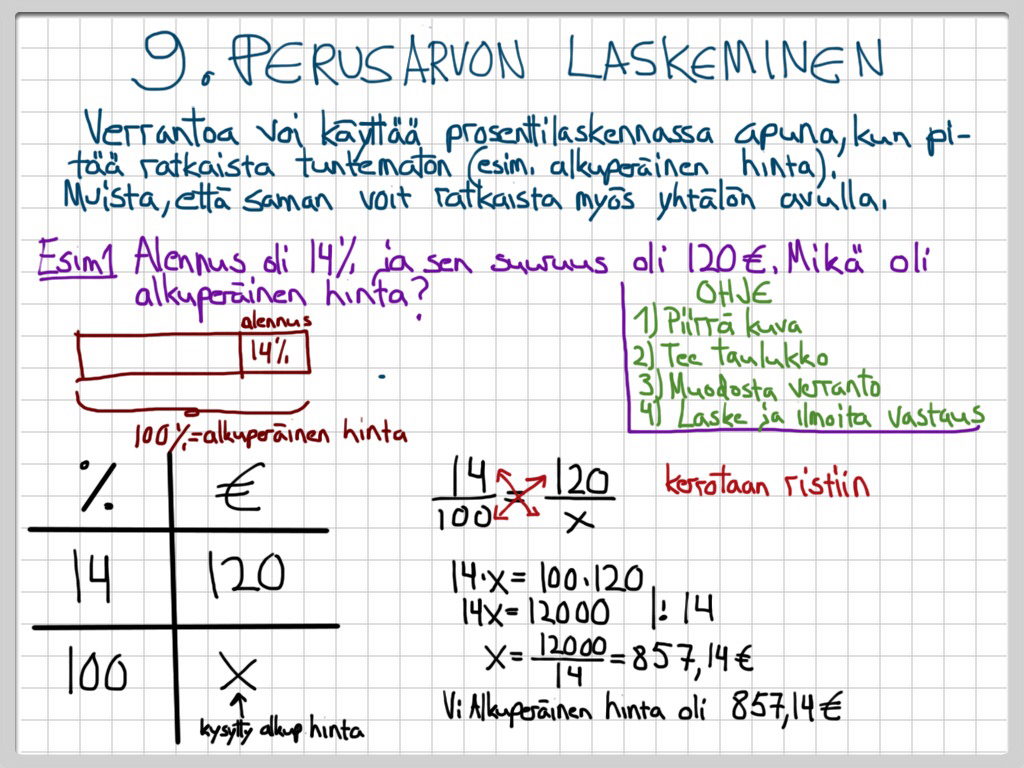 9. PERUSARVON LASKEMINEN
Verrantoa voi käyttää prosenttilaskennassa apuna, kun pi-
tää ratkaista tuntematon (esim. alkuperäinen hinta).
Muista, että saman voit ratkaista myös yhtälön avulla.
Esim1 Alennus oli 14% ja sen suuruus oli 120 €. Mikä oli
alkuperäinen hinta?
OHJE
1) Piirrä kuva
2) Tee taulukko
3) Muodosta verranto
4) Laske ja ilmoita vastaus
alennus
14%
100%=alkuperäinen hinta
% €
14 120
100 X
kysytty alkup hinta
14/100 = 120/x kerrotaan ristiin
14·x = 100·120
14x = 12000 |: 14
x = 12000/14 = 857,14€
V: Alkuperäinen hinta oli 857,14€